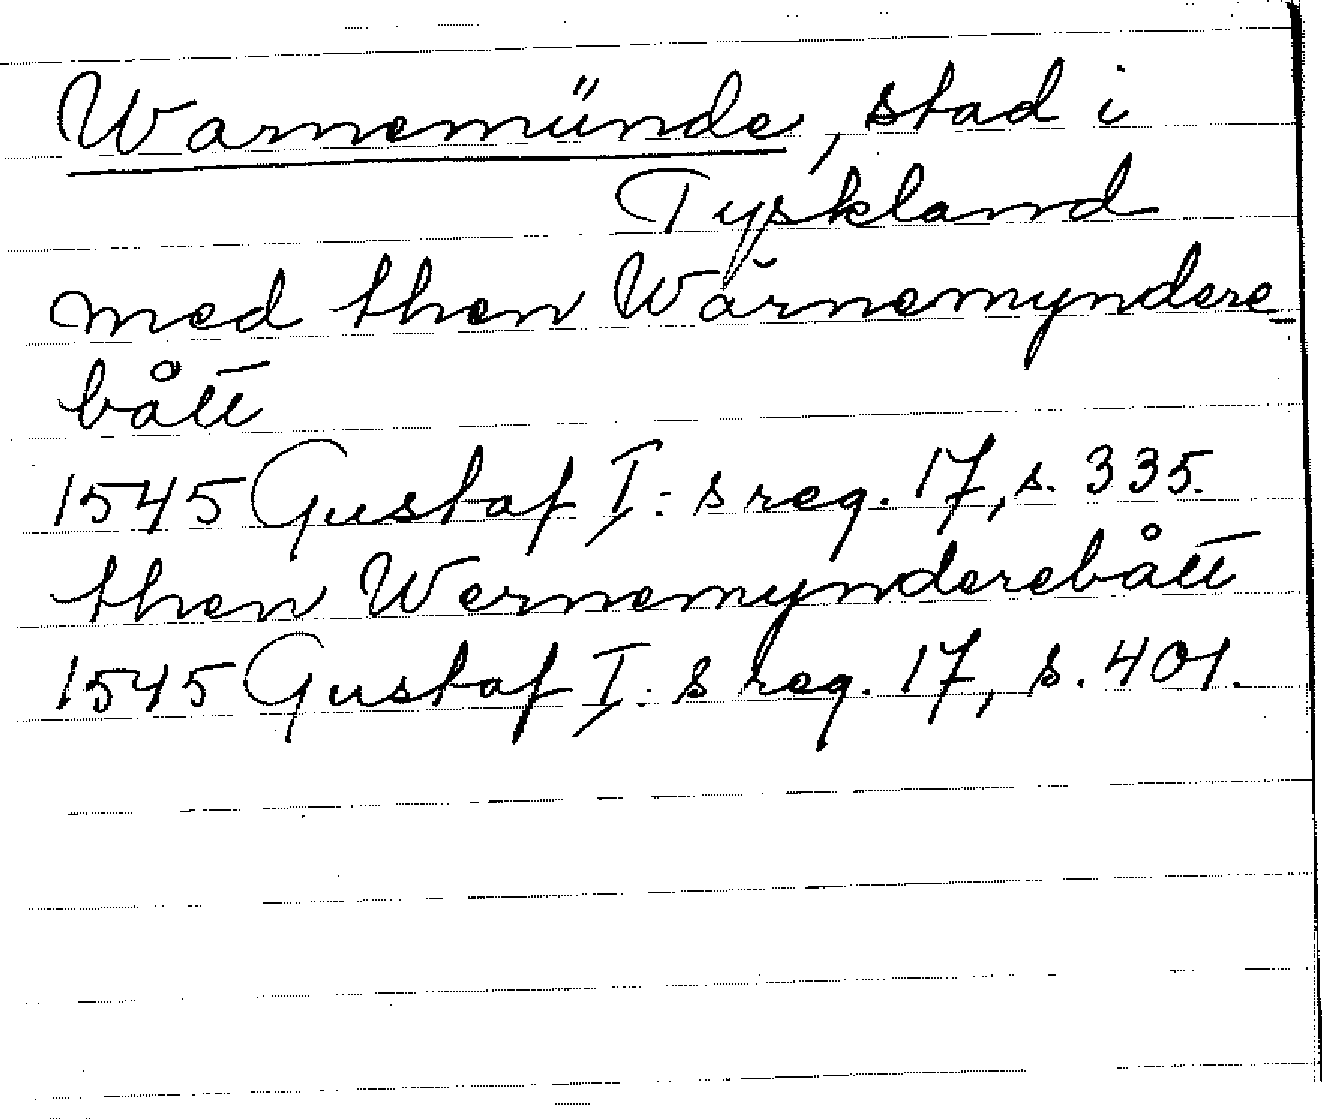 Warnemünde, stad i
Tyskland
med then Wărnemyndere-
bått
1545 Gustaf I:s reg. 17, s. 335.
then Wernemynderebått
1545 Gustaf I:s reg. 17, s. 401.